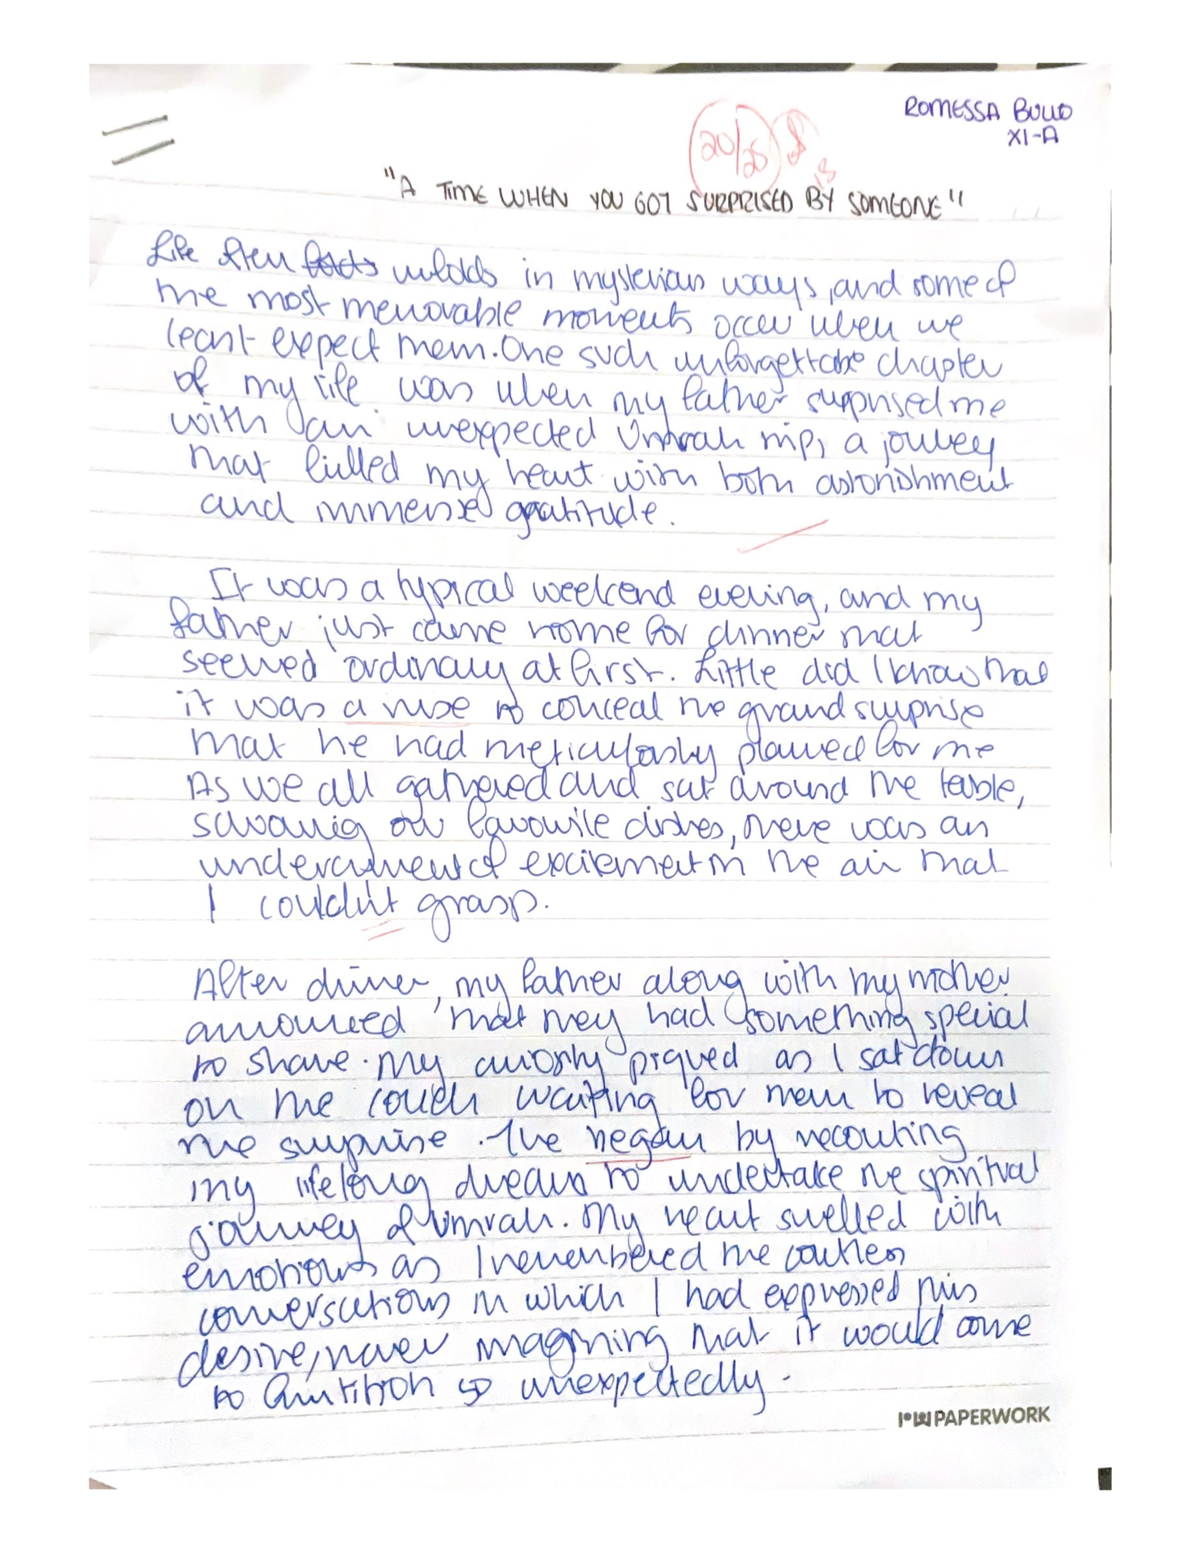 ROMESSA BULLO
XI-A
20/25
"A TIME WHEN YOU GOT SURPRISED BY SOMEONE"
Life often unfolds in mysterious ways, and some of
the most memorable moments occur when we
least expect them. One such unforgettable chapter
of my life was when my father surprised me
with an unexpected Umrah trip, a journey
that filled my heart with both astonishment
and immense gratitude.
It was a typical weekend evening, and my
father just came home for dinner that
seemed ordinary at first. Little did I know that
it was a ruse to conceal the grand surprise
that he had meticulously planned for me
As we all gathered and sat around the table,
savouring our favourite dishes, there was an
undercurrent of excitement in the air that
I couldn't grasp.
After dinner, my father along with my mother
announced that they had something special
to share. My curiosity piqued as I sat down
on the couch waiting for them to reveal
the surprise. He began by recounting
my lifelong dream to undertake the spiritual
journey of Umrah. My heart swelled with
emotions as I remembered the countless
conversations in which I had expressed this
desire, never imagining that it would come
to fruition so unexpectedly.
PAPERWORK